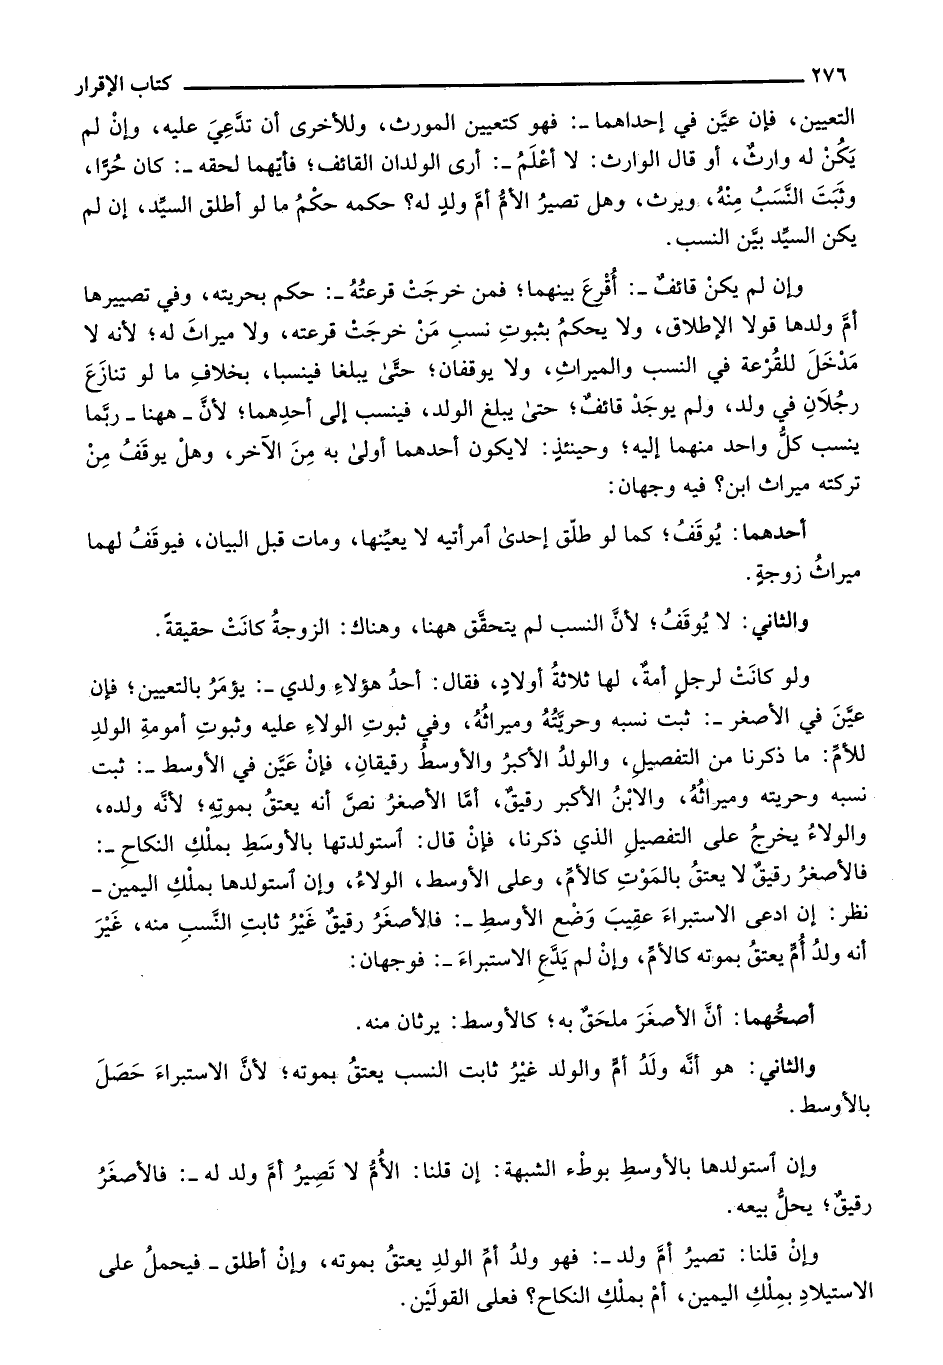 ٢٧٦ كتاب الإقرار
التعيين، فإن عيَّن في إحداهما ـ: فهو كتعيين المورث، وللأخرى أن تدَّعِيَ عليه، وإنْ لم
يَكُنْ له وارثٌ، أو قال الوارث: لا أعْلَمُ ـ: أرى الولدان القائف؛ فأيّهما لحقه ـ: كان حُرًّا،
وثَبَتَ النَّسَبُ مِنْهُ، ويرث، وهل تصيرُ الأمُّ أمَّ ولدٍ له؟ حكمه حكْمُ ما لو أطلق السيِّد، إن لم
يكن السيِّد بيَّن النسب.
وإن لم يكنْ قائفٌ ـ: أُقْرِعَ بينهما؛ فمن خرجَتْ قرعتُهُ ـ: حكم بحريته، وفي تصييرها
أمَّ ولدها قولا الإطلاق، ولا يحكمُ بثبوتِ نسبِ مَنْ خرجَتْ قرعته، ولا ميراثَ له؛ لأنه لا
مَدْخَلَ للقُرْعة في النسب والميراثِ، ولا يوقفان؛ حتَّىٰ يبلغا فينسبا، بخلافِ ما لو تنازَعَ
رجُلَانِ في ولد، ولم يوجَدْ قائفٌ؛ حتىٰ يبلغ الولد، فينسب إلى أحدِهما؛ لأنَّ ـ ههنا ـ ربَّما
ينسب كلُّ واحد منهما إليه؛ وحينئذٍ: لايكون أحدهما أولىٰ به مِنَ الآخر، وهلْ يوقَفُ مِنْ
تركته ميراث ابن؟ فيه وجهان:
أحدهما: يُوقَفُ؛ كما لو طلّق إحدىٰ ٱمرأتيه لا يعيِّنها، ومات قبل البيان، فيوقَفُ لهما
ميراثُ زوجةٍ.
والثاني: لا يُوقَفُ؛ لأنَّ النسب لم يتحقَّق ههنا، وهناك: الزوجةُ كانَتْ حقيقةً.
ولو كانَتْ لرجلٍ أمةٌ، لها ثلاثةُ أولادٍ، فقال: أحدُ هؤلاءِ ولدي ـ: يؤمَرُ بالتعيين؛ فإن
عيَّنَ في الأصغر ـ: ثبت نسبه وحريَّتُهُ وميراثُهُ، وفي ثبوتِ الولاءِ عليه وثبوتِ أمومةِ الولدِ
للأمِّ: ما ذكرنا من التفصيلِ، والولدُ الأكبرُ والأوسطُ رقيقانِ، فإنْ عَيَّن في الأوسط ـ: ثبت
نسبه وحريته وميراثُهُ، والابْنُ الأكبر رقيقٌ، أمَّا الأصغرُ نصَّ أنه يعتقُ بموتِهِ؛ لأنَّه ولده،
والولاءُ يخرجُ على التفصيلِ الذي ذكرنا، فإنْ قال: ٱستولدتها بالأوسَطِ بملْكِ النكاحِ ـ:
فالأصغرُ رقيقٌ لا يعتقُ بالمَوْتِ كالأمِّ، وعلى الأوسط، الولاءُ، وإن ٱستولدها بملْكِ اليمين ـ
نظر: إن ادعى الاستبراءَ عقِيبَ وَضْع الأوسطِ ـ: فالأصغَرُ رقيقٌ غَيْرُ ثابتِ النَّسبِ منه، غَيْرَ
أنه ولدُ أُمِّ يعتقُ بموته كالأمِّ، وإنْ لم يَدَّعِ الاستبراءَ ـ: فوجهان:
أصحُّهما: أنَّ الأصغَرَ ملحَقٌ به؛ كالأوسط: يرثان منه.
والثاني: هو أنَّه ولَدُ أمِّ والولد غيْرُ ثابت النسب يعتقُ بموته؛ لأنَّ الاستبراءَ حَصَلَ
بالأوسط.
وإن ٱستولدها بالأوسطِ بوطْء الشبهة: إن قلنا: الأُمُّ لا تَصِيرُ أمَّ ولد له ـ: فالأصغَرُ
رقيقٌ؛ يحلُّ بيعه.
وإنْ قلنا: تصيرُ أمَّ ولد ـ: فهو ولدُ أمِّ الولدِ يعتقُ بموته، وإنْ أطلق ـ فيحملُ على
الاستيلادِ بمِلْكِ اليمين، أمْ بملْكِ النكاح؟ فعلى القولَيْن.